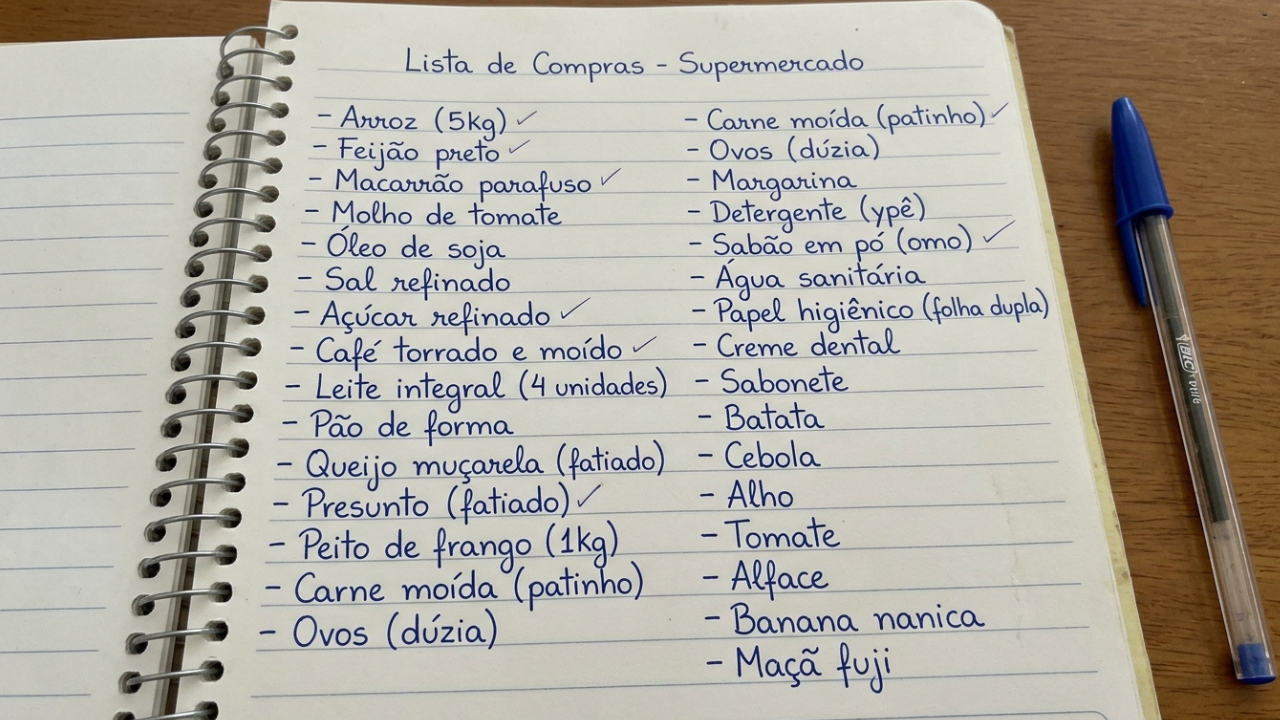 Lista de Compras - Supermercado
- Arroz (5kg) ✓
- Feijão preto ✓
- Macarrão parafuso ✓
- Molho de tomate
- Óleo de soja
- Sal refinado
- Açúcar refinado ✓
- Café torrado e moído ✓
- Leite integral (4 unidades)
- Pão de forma
- Queijo muçarela (fatiado)
- Presunto (fatiado) ✓
- Peito de frango (1kg)
- Carne moída (patinho)
- Ovos (dúzia)
- Carne moída (patinho) ✓
- Ovos (dúzia)
- Margarina
- Detergente (ypê)
- Sabão em pó (omo) ✓
- Água sanitária
- Papel higiênico (folha dupla)
- Creme dental
- Sabonete
- Batata
- Cebola
- Alho
- Tomate
- Alface
- Banana nanica
- Maçã fuji
BIC